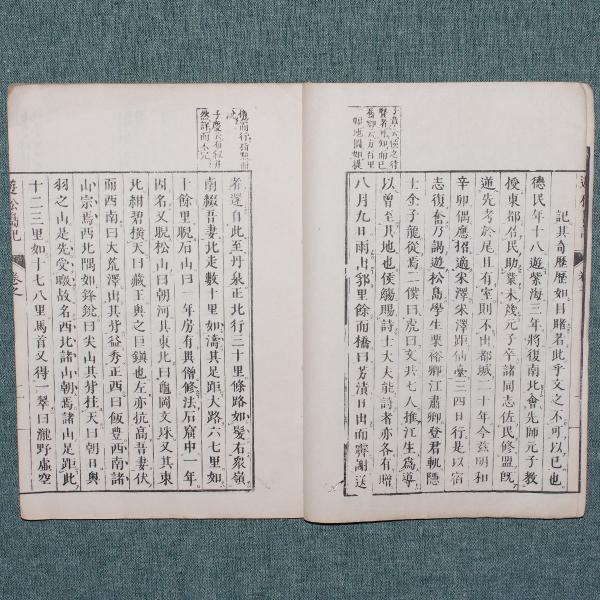 子真云浴之往
記其奇歷歷如目睹者此乎文之不可以已也
德民年十八遊紫海三年將復南北會先師元子教
授東都召民助業未幾元子卒諸同志佐民修盟既
道先考於尾且有室則不出都城二十年今茲明和
辛卯偶應招適宋澤宋澤距仙臺三四日行是以宿
志復奮乃謁遊松島學生栗裕卿江肅卿登君軏隱
士金子龍從焉二僕曰虎曰文共七人推江生為導
以曾至其地也侯觴賜詩士大夫能詩者亦各有贈
八月九日雨占鄂里餘而橋曰芳漬日出而霽謝送
子慶云有叙井
然詳而不冗
者還自此至丹泉正北行三十里條路如髮石衆嶺
南綴吾妻北走數十里如濤其足距大路六七里如
十餘里睨石山曰一年房有異僧修法石窟中一年
因又名睨松山曰朝河其東北曰龜岡文珠又其東
北紺碧橫天曰藏王奧之巨鎮也左亦抗高吾妻伏
而西南曰大荒澤出其背益秀正西曰飯豊西南諸
山宗焉西北隅如鋒銳曰尖山其背拄天曰朝日奧
羽之山是先受暾故名西北諸山朝焉諸山足距此
十二三里如十七八里馬首又得一翠曰瀧野虛空
遊松島記